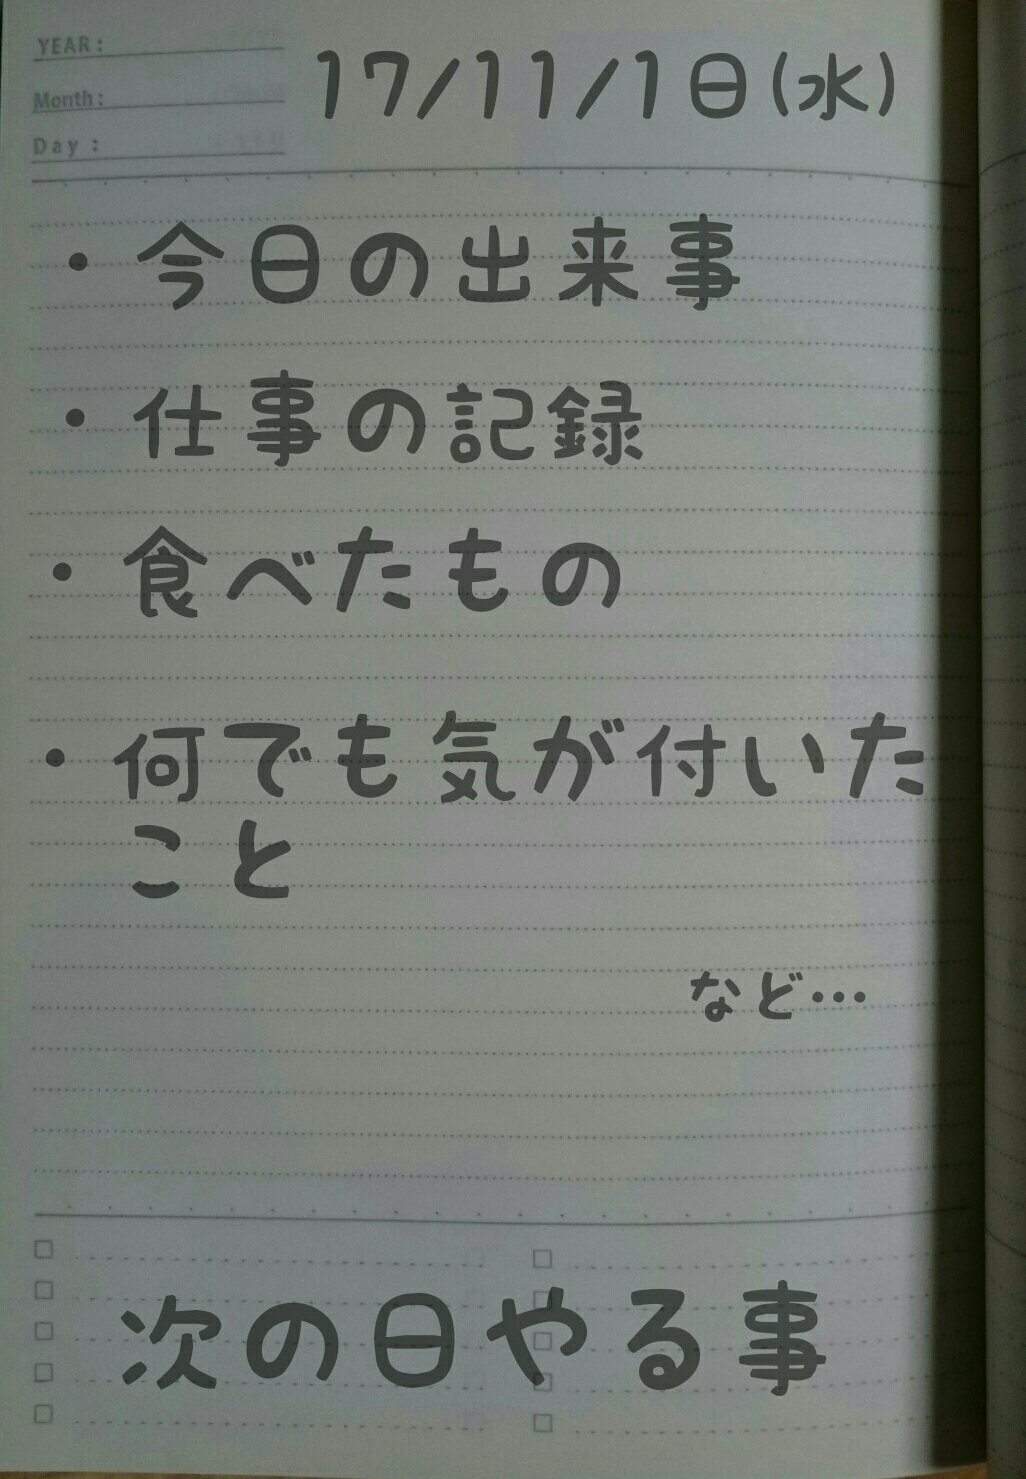 YEAR :
17/11/1日(水)
Month :
Day :
・今日の出来事
・仕事の記録
・食べたもの
・何でも気が付いた
こと
など…
次の日やる事